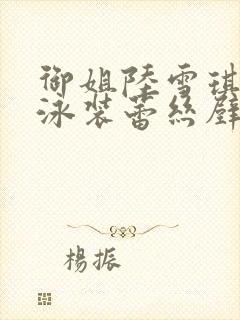 御姐陸雪琪
泳裝蕾絲壁
楊振